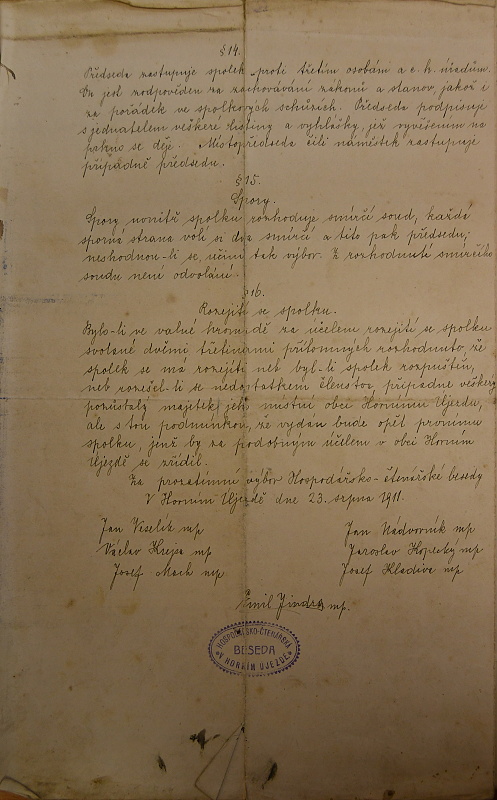 § 14.
Předseda zastupuje spolek proti třetím osobám a c. k. úřadům.
On jest zodpověden za zachovávání zákonů a stanov, jakož i
za pořádek ve spolkových schůzích. Předseda podpisuje
s jednatelem veškeré listiny a vyhlášky, jež vyvěšením na
se děje. Místopředseda čili náměstek zastupuje
případně předsedu.
§ 15.
Spory.
Spory uvnitř spolku rozhoduje smírčí soud, každá
sporná strana volí si dva smírčí a tito pak předsedu;
neshodnou-li se, učiní tak výbor. Z rozhodnutí smírčího
soudu není odvolání.
§ 16.
Rozejití se spolku.
Bylo-li ve valné hromadě za účelem rozejití se spolku
svolané dvěmi třetinami přítomných rozhodnuto, že
spolek se má rozejíti neb byl-li spolek rozpuštěn,
neb rozešel-li se nedostatkem členstva, připadne veškerý
pozůstalý majetek jeho místní obci Hornímu Ujezdu,
ale s tou podmínkou, že vydán bude opět prvnímu
spolku, jenž by za podobným účelem v obci Horním
Ujezdě se zřídil.
Za prozatímní výbor Hospodářsko-čtenářské besedy
V Horním Ujezdě dne 23. srpna 1911.
Jan Veselík mp
Jan Nádvorník mp
Václav Krejsa mp
Jaroslav Kopecký mp
Josef Mach mp
Josef Kladiva mp
Emil Jindra mp.
HOSPODÁŘSKO-ČTENÁŘSKÁ
BESEDA
V HORNÍM UJEZDĚ